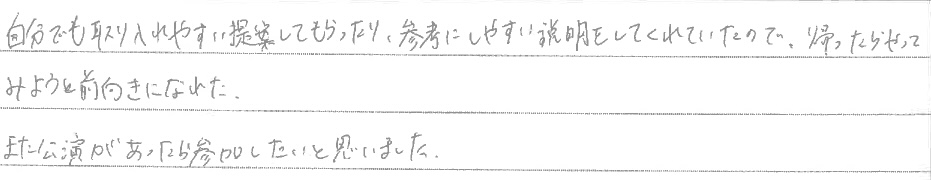 自分でも取り入れやすい提案してもらったり、参考にしやすい説明をしてくれていたので、帰ったらやって
みようと前向きになれた。
また公演があったら参加したいと思いました。